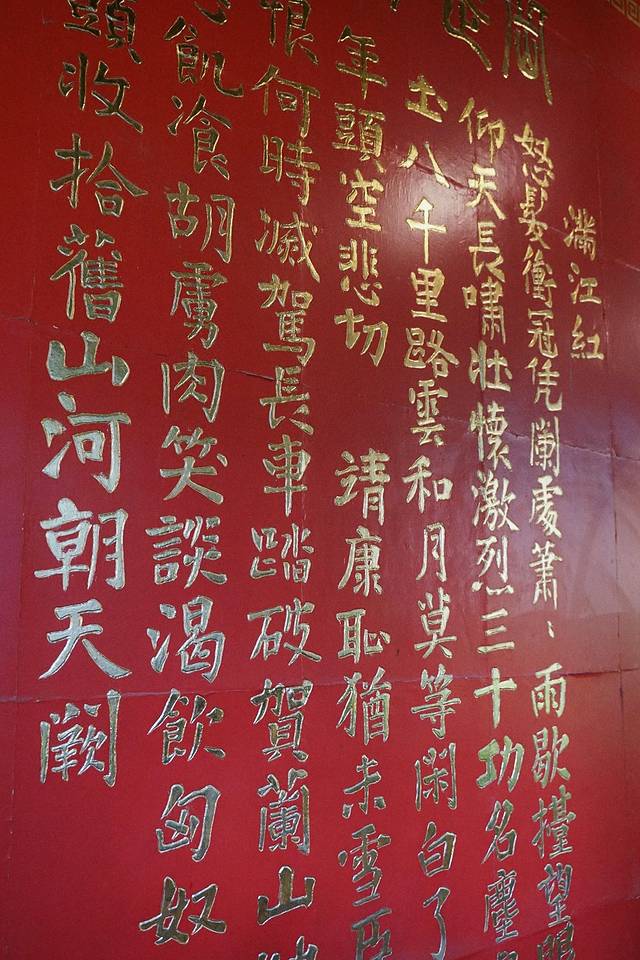 滿江紅
怒髮衝冠凭闌處蕭〻雨歇擡望眼
仰天長嘯壯懷激烈三十功名塵
土八千里路雲和月莫等閑白了
年頭空悲切 靖康恥猶未雪臣
恨何時滅駕長車踏破賀蘭山
飢飡胡虜肉笑談渴飲匈奴
頭收拾舊山河朝天闕